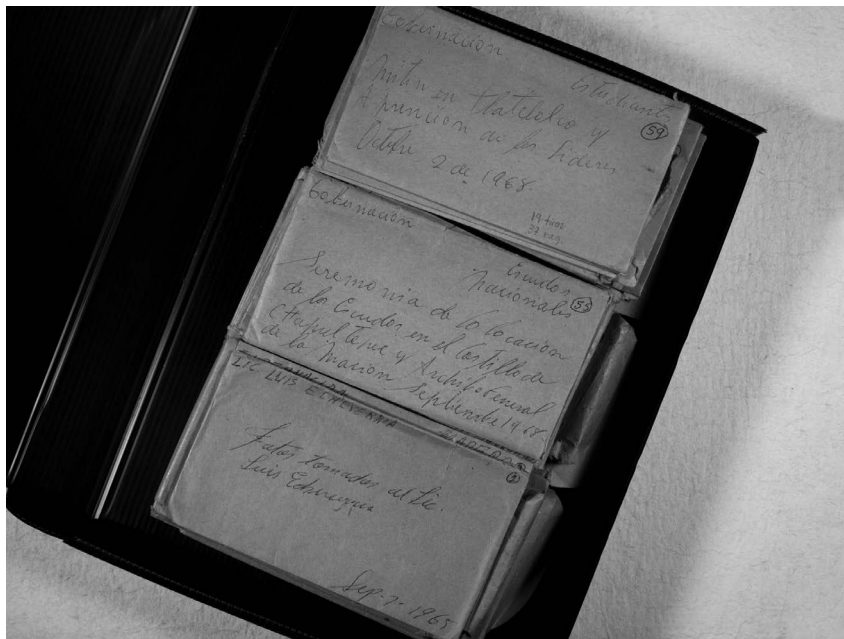 Gobernacion
Estudiantes
Mitin en Tlatelolco y
Aprencion de los Lideres
Octubre 2 de 1968.
59
19 tiras
37 neg.
Gobernacion
Escudos
Nacionales
55
Seremonia de Colocacion
de los Escudos en el Castillo de
Chapultepec y Archibo General
de la Nacion Septiembre 1968
LIC LUIS ECHEVERRIA
Fotos tomadas al Lic.
Luis Echeverria
Sep-7-1965